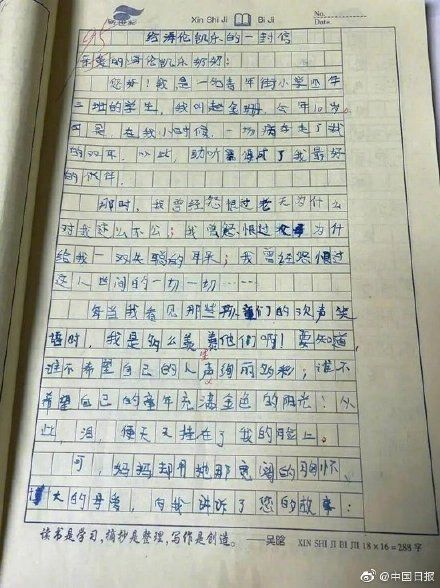 Xin Shi Ji Bi Ji
No.
Date.
95
给海伦凯乐的一封信
亲爱的海伦凯乐奶奶：
您好！我是一名青年街小学四年
三班的学生，我叫赵金珊，今年10岁。
可是，在我小时候，一场病夺走了我
的双耳，从此，助听器便成了我最好
的伙伴。
那时，我曾经怨恨过老天为什么
对我这么不公；我曾怨恨过为什
给我一双失聪的耳朵；我曾经怨恨过
这人世间的一切一切……
每当我看见那些孩们的欢声笑
语时，我是多么羡慕他们啊！要知道，
谁不希望自己的人生绚丽多彩；谁不
希望自己的童年充满金色的阳光！从
此，泪，便天天挂在了我的脸上。
可，妈妈却用她那宽阔的胸怀、
大的母爱，向我讲诉了您的故事：
读书是学习，摘抄是整理，写作是创造。——吴晗
XIN SHI JI BI JI 18×16=288字
@中国日报